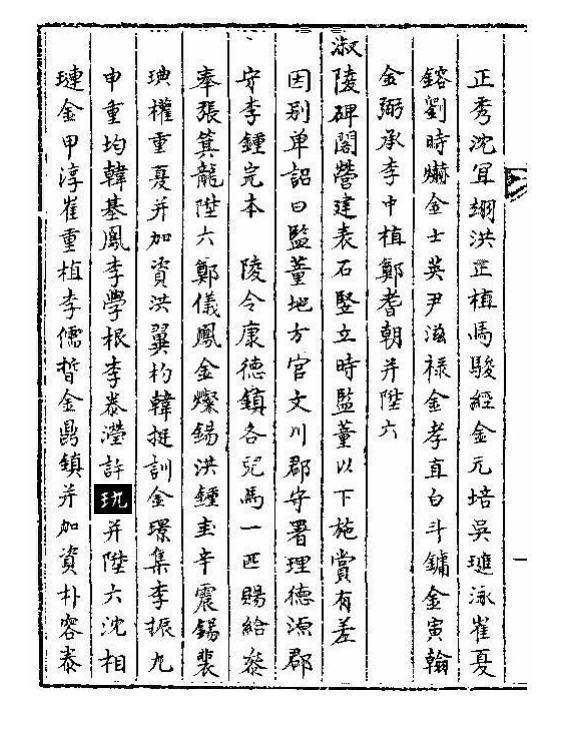 正秀沈宜翊洪正植馬駿經金元培吳璉泳崔夏
鎔劉時爀金士英尹滋祿金孝直白斗鏞金寅翰
金弼承李中植鄭耆朝并陞六
淑陵碑閣營建表石竪立時監董以下施賞有差
因別單詔曰監董地方官文川郡守署理德源郡
守李鍾完本 陵令康德鎮各兒馬一匹賜給參
奉張箕龍陞六鄭儀鳳金燦錫洪鍾圭辛震錫裴
㻶權重夏并加資洪翼杓韓挺訓金璟集李振九
申重均韓基鳳李學根李泰瀅許珫并陞六沈相
璉金甲淳崔重植李儒晳金鼎鎮并加資朴容泰